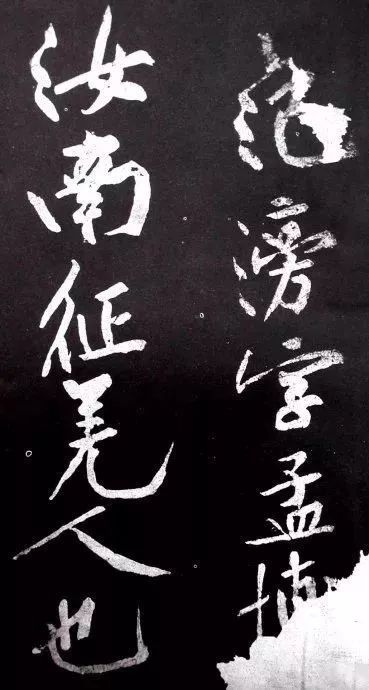 范滂字孟博
汝南征羌人也